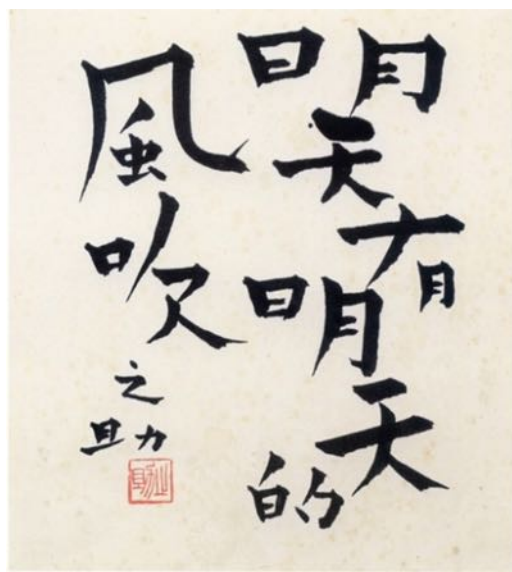 明天有明天的
風吹
之助